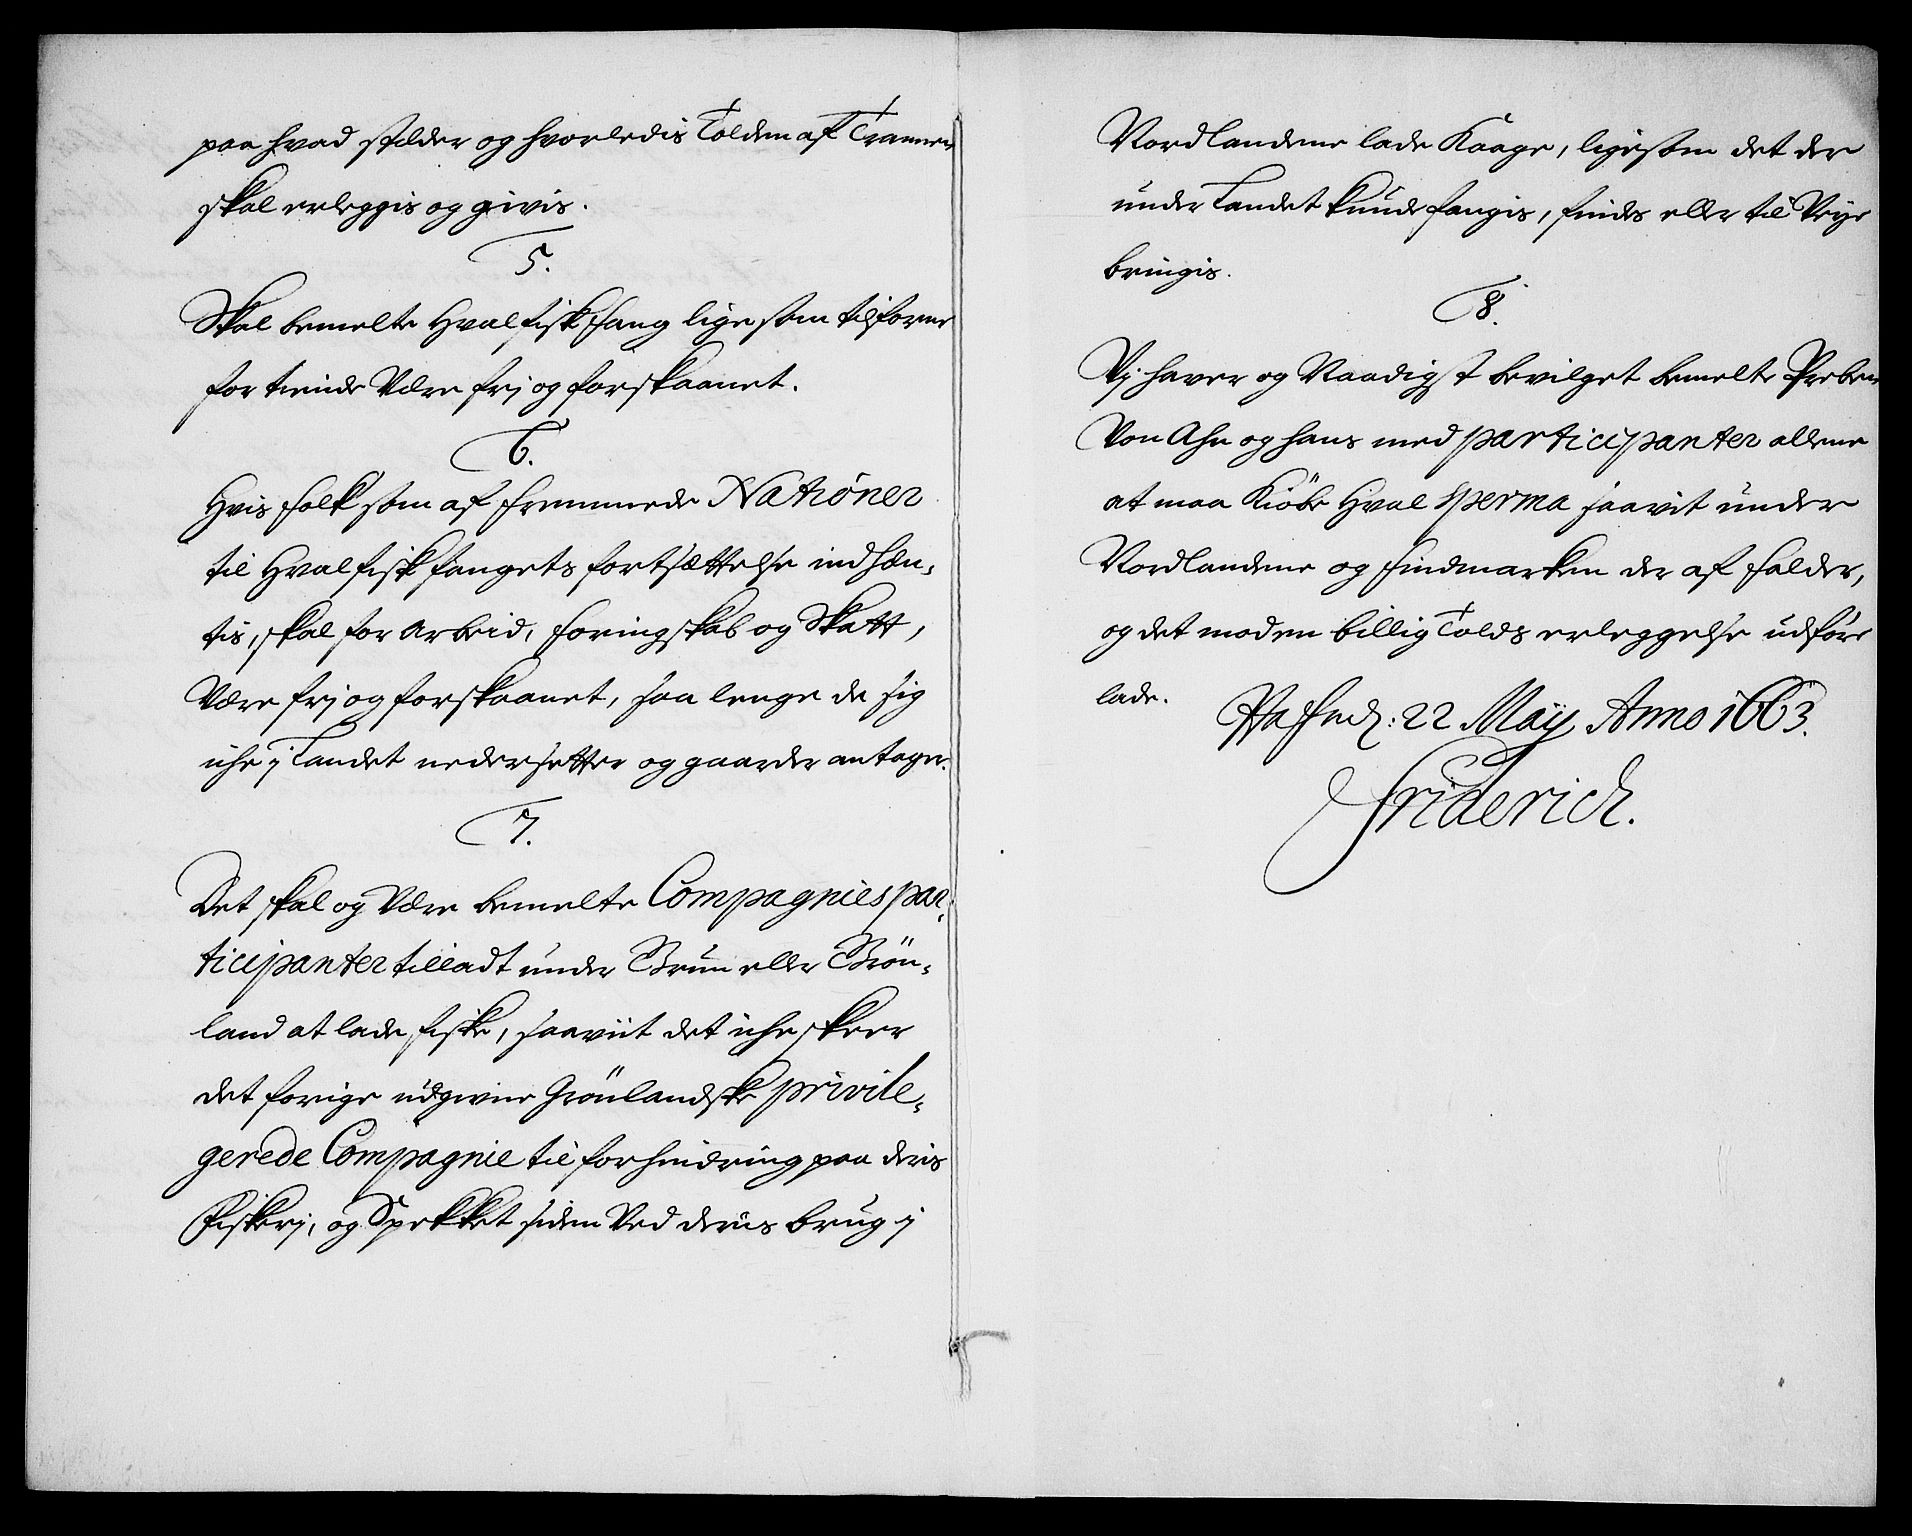 paa hvad stæder og hvorledis Tolden af Trannen
skal erleggis og givis.
5.
Skal bemelte Hvalfiskfang lige som tilforne
for tiende Være frj og forskaanet.
6.
Hvis folk som af fremmede Nationer
til Hvalfiskfangets fortsættelse indhæn-
tis, skal for arbeid, foringskab og Skatt,
Være frj og forskaanet, saa lenge de sig
iche j Landet nedersetter og gaarder antager.
7.
Det skal og Være bemelte Compagnies par-
ticipanter tilladt under Grun eller Grön-
land at lade fiske, saaviit det iche skeer
det forige udgivne Grönlandske privile-
gerede Compagnie til forhindring paa deris
Fiskerj, og Spekket siden Ved deris brug j
Nordlandene lade Kaage, ligesom det der
under Landet kunde fangis, findes eller til Veye
bringis.
8.
Vj haver og Naadigst bevilget bemelte Preben
Von Ahn og hans med participanter allene
at maa Kiöbe Hval sperma saavit under
Nordlandene og Findmarken der af falder,
og det mod en billig Tolds erleggelse udföre
lade.
Hafned: 22 Maij Anno 1663.
Friderich.